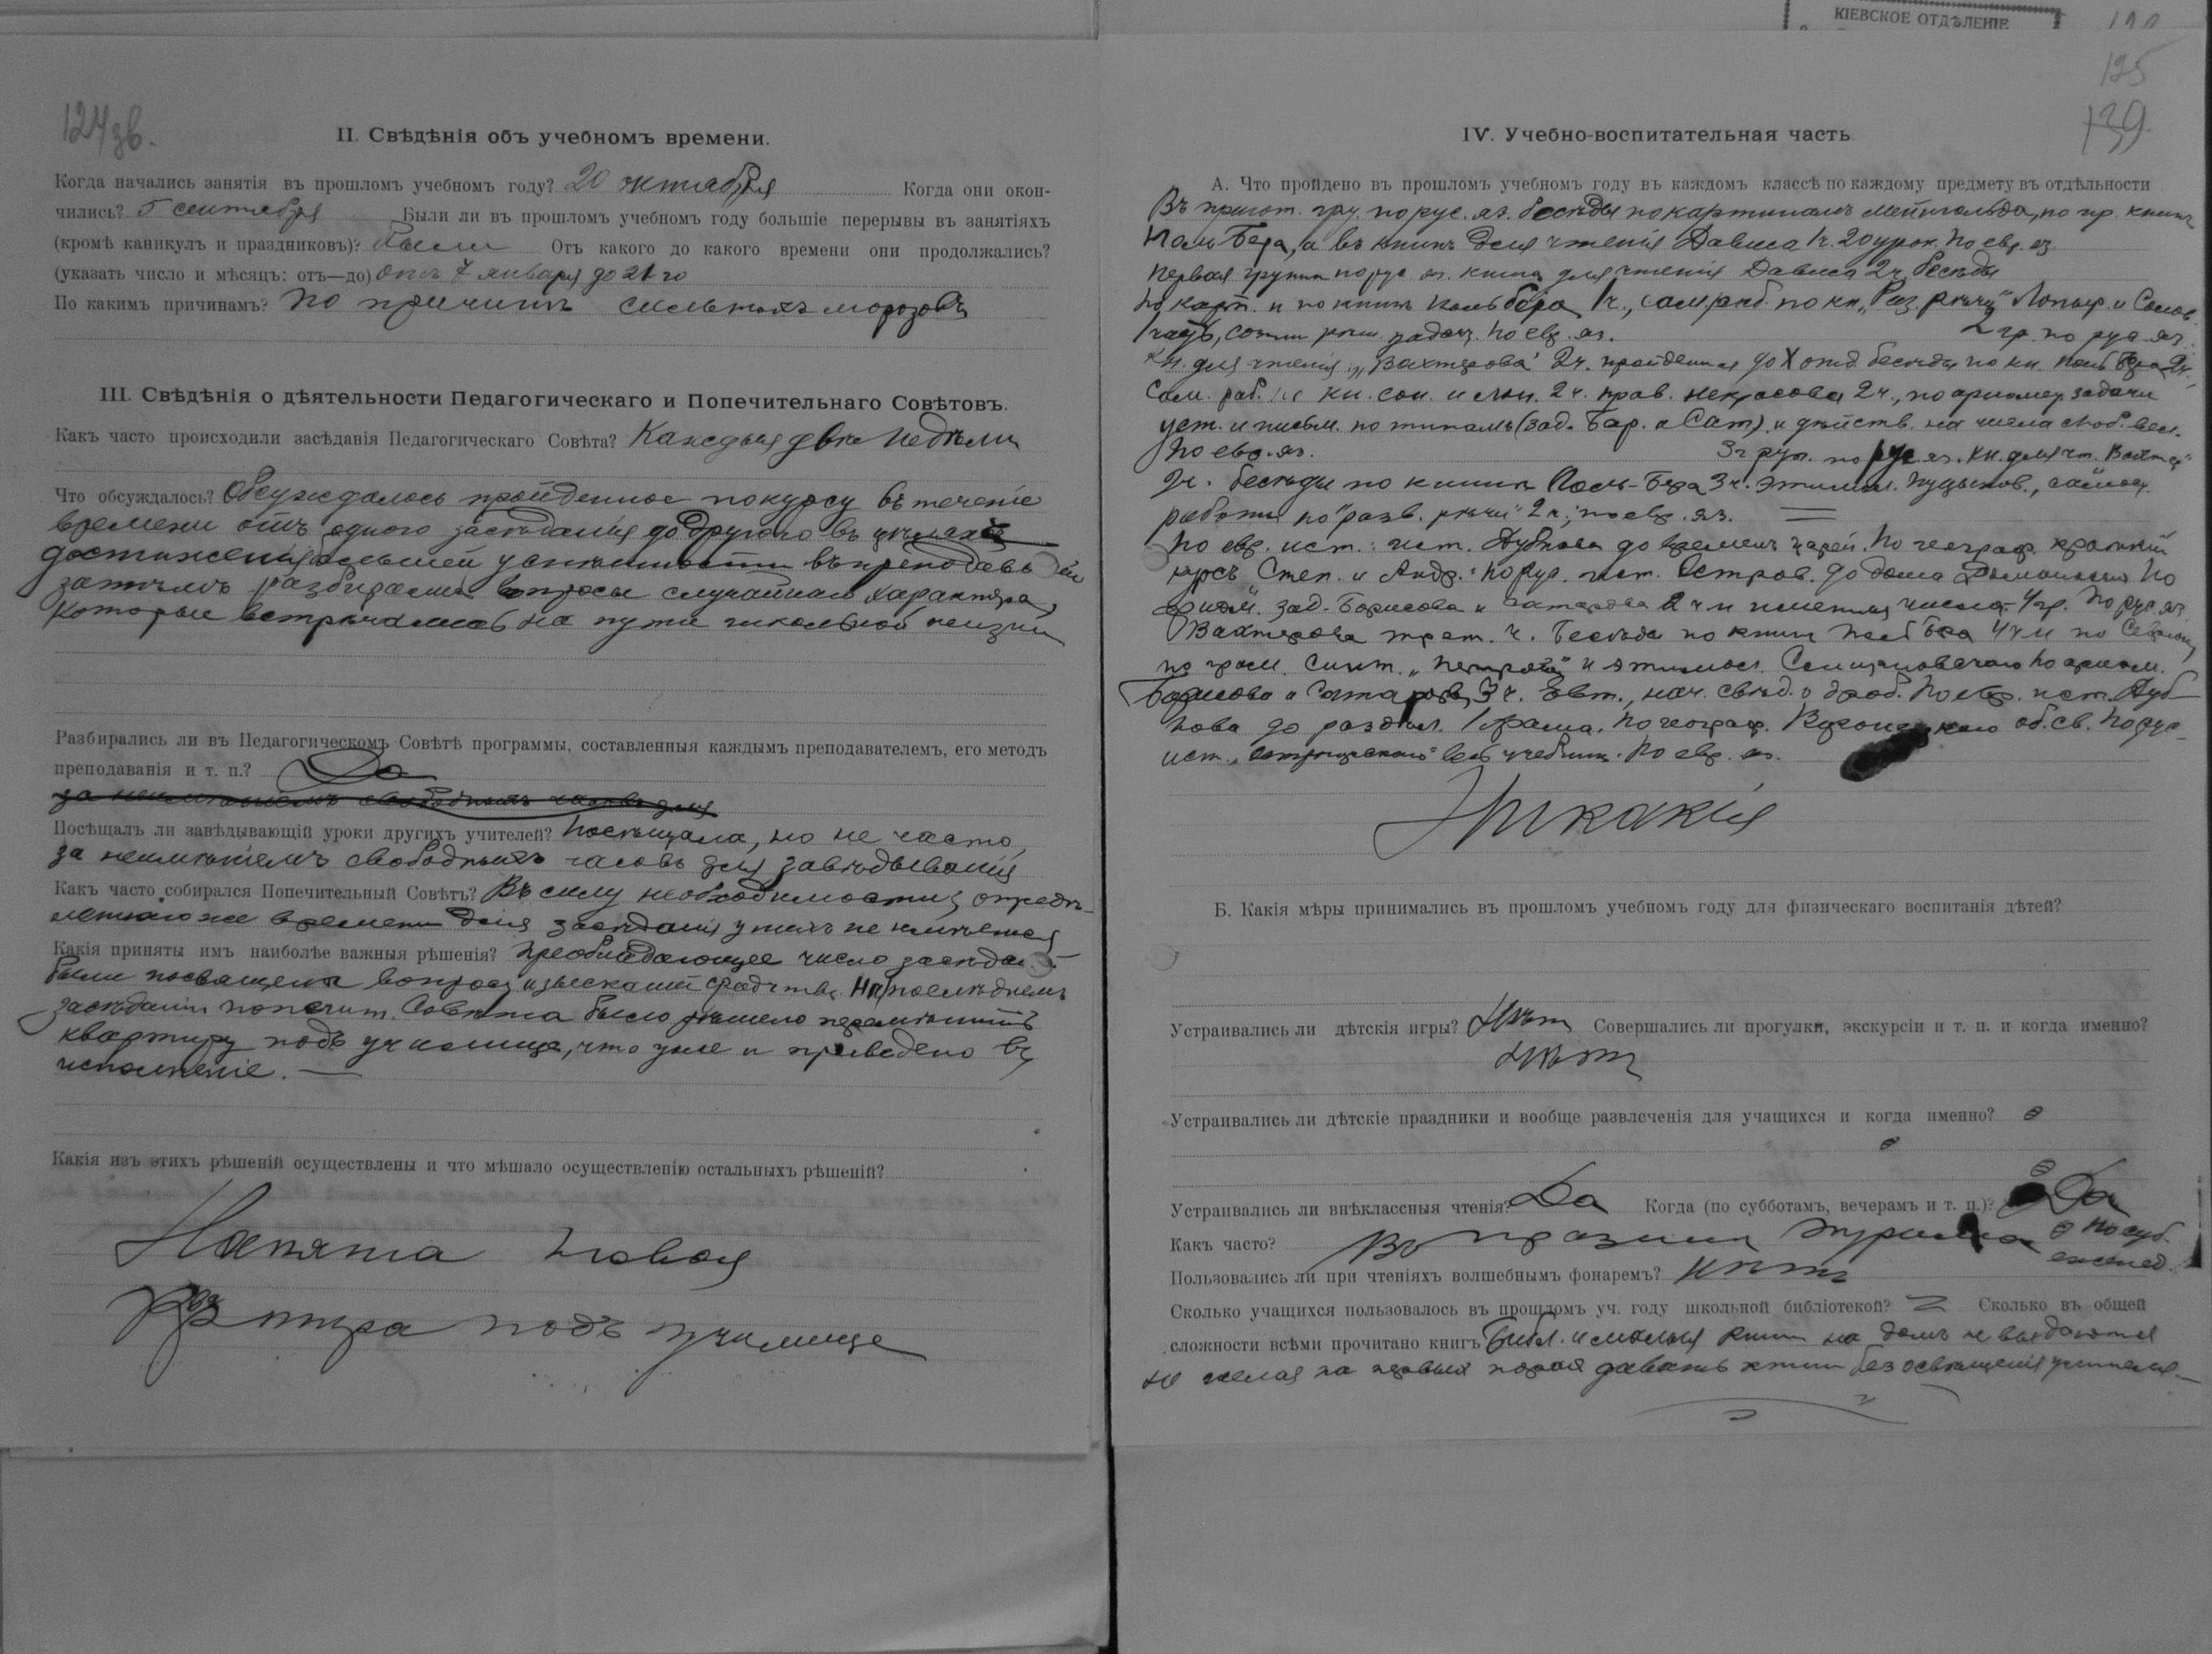 124 зв.
II. Свѣдѣнія объ учебномъ времени.
Когда начались занятія въ прошломъ учебномъ году? 20 октября Когда они окон-
чились? 5 сентября Были ли въ прошломъ учебномъ году большіе перерывы въ занятіяхъ
(кромѣ каникулъ и праздниковъ)? Были Отъ какого до какого времени они продолжались?
(указать число и мѣсяцъ: отъ—до) отъ 7 января до 21 го
По какимъ причинамъ? По причинѣ сильныхъ морозовъ
III. Свѣдѣнія о дѣятельности Педагогическаго и Попечительнаго Совѣтовъ.
Какъ часто происходили засѣданія Педагогическаго Совѣта? Каждыя двѣ недѣли
Что обсуждалось? Обсуждалось пройденное по курсу въ теченіе
времени отъ одного засѣданія до другого въ цѣляхъ
достиженія большей успѣшности въ преподаваніи
затѣмъ разбирались вопросы случайнаго характера,
которые встрѣчались на пути школьной жизни
Разбирались ли въ Педагогическомъ Совѣтѣ программы, составленныя каждымъ преподавателемъ, его методъ
преподаванія и т. п.? Да
за неимѣніемъ свободныхъ часовъ для
Посѣщалъ ли завѣдывающій уроки другихъ учителей? Посѣщала, но не часто,
за неимѣніемъ свободныхъ часовъ для завѣдыванія
Какъ часто собирался Попечительный Совѣтъ? Въ силу необходимости, опредѣ-
леннаго же времени для засѣданія у нихъ не имѣется
Какія приняты имъ наиболѣе важныя рѣшенія? Преобладающее число засѣданій
были посвящены вопросу изысканій средствъ. На послѣднемъ
засѣданіи попечит. Совѣта было рѣшено перемѣнить
квартиру подъ училище, что уже и приведено въ
исполненіе. —
Какія изъ этихъ рѣшеній осуществлены и что мѣшало осуществленію остальныхъ рѣшеній?
Нанята новая
подъ училище
КІЕВСКОЕ ОТДѢЛЕНІЕ
125
139
IV. Учебно-воспитательная часть
А. Что пройдено въ прошломъ учебномъ году въ каждомъ классѣ по каждому предмету въ отдѣльности
Въ пригот. гру. по рус. яз. бесѣды по картинамъ Мейнгольда, по пр. книгѣ
Поль Бера, а въ книгѣ для чтенія Дависа 1 ч. 20 урок. По евр. яз.
Первая группа по рус. яз. книга для чтенія Дависа 2 ч. бесѣды
по карт. и по книгѣ Поль Бера 1 ч., сам. раб. по кн. „Раз. рѣчи"
задач. По евр. яз. 2 гр. по рус. яз.
Кн. для чтенія „Вахтерова" 2 ч. пройденная до X отд. бесѣды по кн. Поль Бера 2 ч.,
Сам. раб. по кн. 2 ч. прав. Некрасова 2 ч., по ариөмет. задачи
уст. и письм. по типамъ (зад. Бор. и Сат) и дѣйств. на числа
По евр. яз. 3 груп. по рус. яз. кн. для чт. Вахтер
2 ч. бесѣды по книгѣ Поль-Бера 3 ч. этимол.
работы по "разв. рѣчи" 2 ч.; по евр. яз. =
По евр. ист.: ист. Дубнова до временъ царей. По географ. краткій
курсъ Степ. и Андр. По рус. ист. Остров. до дома По
зад. Борисова и Сатарова 2 ч и числа. 4 гр. По рус. яз.
Вахтерова трет. ч. Бесѣда по книгѣ Поль Бера 4 ч и по
по грам. Синт. и этимол. По ариөм.
Борисова и Сатарова 3 ч. нач. свѣд. о дроб. По евр. ист. Дуб-
нова до По географ. об. св. По рус.
ист. „Островскаго" весь учебник. По евр. яз.
Никакія
Б. Какія мѣры принимались въ прошломъ учебномъ году для физическаго воспитанія дѣтей?
Устраивались ли дѣтскія игры? Нѣтъ Совершались ли прогулки, экскурсіи и т. п. и когда именно?
Нѣтъ
Устраивались ли дѣтскіе праздники и вообще развлеченія для учащихся и когда именно?
Устраивались ли внѣклассныя чтенія? Да Когда (по субботамъ, вечерамъ и т. п.)? Да
Какъ часто? По суб.
еженед.
Пользовались ли при чтеніяхъ волшебнымъ фонаремъ? Нѣтъ
Сколько учащихся пользовалось въ прошломъ уч. году школьной библіотекой? Сколько въ общей
сложности всѣми прочитано книгъ на домъ не выдаются
не желая на первыхъ порахъ давать книги без